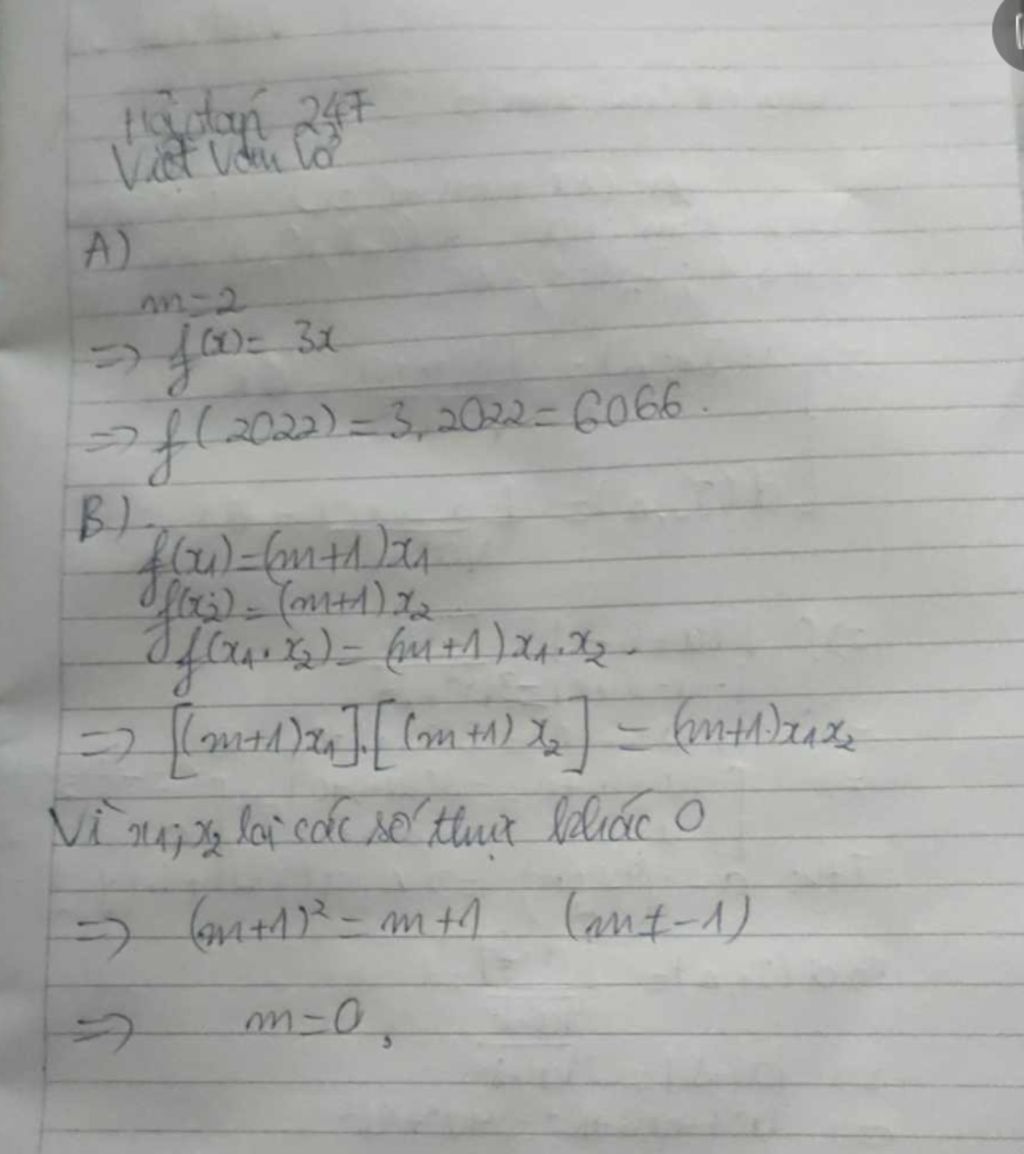 Hỏi đáp 247
Viết Văn Cơ
A)
m=2
=> f(x)= 3x
=> f(2022)=3.2022=6066.
B)
f(x₁)=(m+1)x₁
f(x₂)=(m+1)x₂
f(x₁.x₂)=(m+1)x₁.x₂.
=> [(m+1)x₁].[(m+1)x₂] = (m+1)x₁x₂
Vì x₁;x₂ là các số thực khác 0
=> (m+1)²=m+1 (m≠-1)
=> m=0,